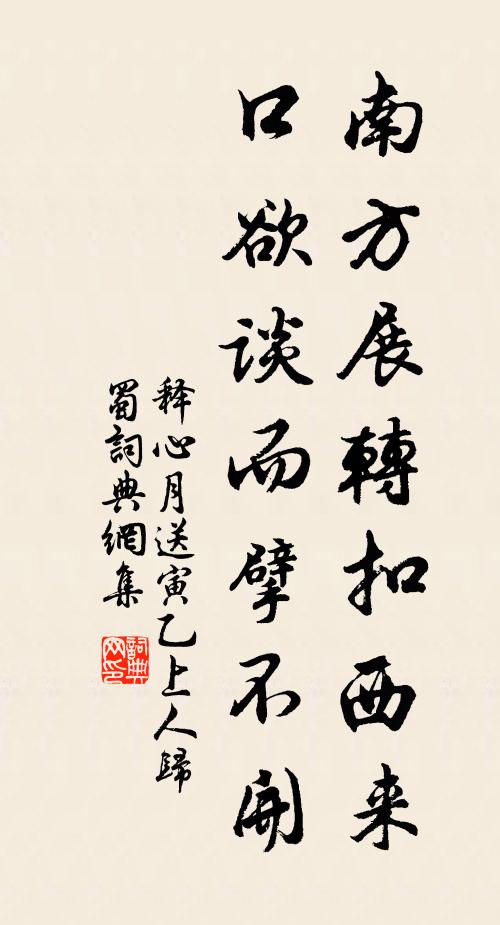 南方展轉扣西来
口欲談而擘不開
释心月送寅乙上人歸
蜀詞典網集
詞典
网印